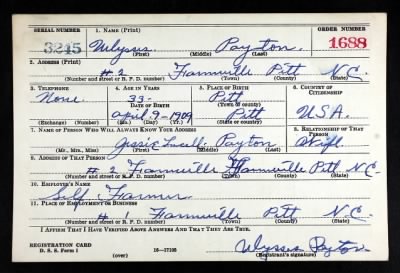 SERIAL NUMBER 1. NAME (Print) ORDER NUMBER
3245 Ulysses Payton 1688
(First) (Middle) (Last)
2. ADDRESS (Print)
# 2 Farmville Pitt N.C.
(Number and street or R. F. D. number) (Town) (County) (State)
3. TELEPHONE 4. AGE IN YEARS 5. PLACE OF BIRTH 6. COUNTRY OF CITIZENSHIP
None 33 Pitt
DATE OF BIRTH (Town or county)
April-9-1909 Pitt U.S.A.
(Exchange) (Number) (Mo.) (Day) (Yr.) (State or country)
7. NAME OF PERSON WHO WILL ALWAYS KNOW YOUR ADDRESS 8. RELATIONSHIP OF THAT PERSON
Jessie Payton Wife
(Mr., Mrs., Miss) (First) (Middle) (Last)
9. ADDRESS OF THAT PERSON
# 2 Farmville Farmville Pitt N.C.
(Number and street or R. F. D. number) (Town) (County) (State)
10. EMPLOYER'S NAME
Self Farmer
11. PLACE OF EMPLOYMENT OR BUSINESS
# 1 Farmville Pitt N.C.
(Number and street or R. F. D. number) (Town) (County) (State)
I AFFIRM THAT I HAVE VERIFIED ABOVE ANSWERS AND THAT THEY ARE TRUE.
REGISTRATION CARD Ulysses Payton
D. S. S. Form 1 16—17105 (Registrant's signature)
(over)